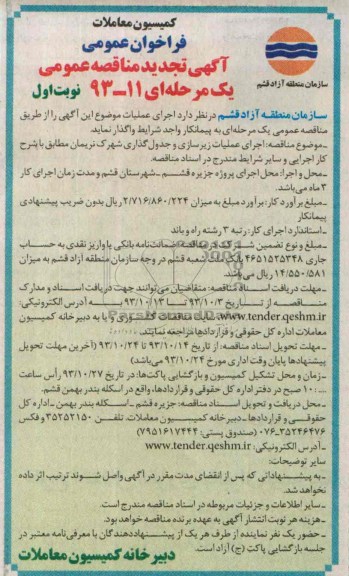 کمیسیون معاملات
فراخوان عمومی
آگهی تجدید مناقصه عمومی
یک مرحله‌ای ۱۱ــ۹۳ نوبت اول
سازمان منطقه آزاد قشم
سازمان منطقه آزاد قشم در نظر دارد اجرای عملیات موضوع این آگهی را از طریق
مناقصه عمومی یک مرحله‌ای به پیمانکار واجد شرایط واگذار نماید.
ـ موضوع مناقصه: اجرای عملیات زیرسازی و جدول‌گذاری شهرک نریمان مطابق با شرح
کار اجرایی و سایر شرایط مندرج در اسناد مناقصه.
ـ محل و اجرا: محل اجرای پروژه جزیره قشــم ـ شهرستان قشم و مدت زمان اجرای کار
۳ ماه می‌باشد.
ـ مبلغ برآورد کار: برآورد مبلغ به میزان ۲/۷۱۶/۸۶۰/۲۲۴ ریال بدون ضریب پیشنهادی
پیمانکار
ـ استاندارد اجرای کار: رتبه ۳ رشته راه و باند
ـ مبلغ و نوع تضمین شــرکت در مناقصه: ضمانت‌نامه بانکی یا واریز نقدی به حساب
جاری ۴۶۵۱۵۲۵۳۴۸ بانک ملت شعبه قشم در وجه سازمان منطقه آزاد قشم به میزان
۱۴/۵۵۰/۵۸۱ ریال می‌باشد.
ـ مهلت دریافت اسناد مناقصه: متقاضیان می‌توانند جهت دریافت اسناد و مدارک
مناقصــه از تــاریخ ۹۳/۱۰/۳ تــا ۹۳/۱۰/۱۳ بــه آدرس الکترونیکی:
www.tender.qeshm.ir و یا به دبیرخانه کمیسیون
معاملات اداره کل حقوقی و قراردادها مراجعه نمایند.
ـ مهلت تحویل اسناد مناقصه: از تاریخ ۹۳/۱۰/۱۴ تا ۹۳/۱۰/۲۴ (آخرین مهلت تحویل
پیشنهادها پایان وقت اداری مورخ ۹۳/۱۰/۲۴ می‌باشد)
ـ زمان و محل تشکیل کمیسیون و بازگشایی پاکت‌ها: در تاریخ ۹۳/۱۰/۲۷ رأس ساعت
۱۰:۰۰ صبح در دفتر اداره کل حقوقی و قراردادها، واقع در اسکله بندر بهمن قشم.
ـ محل دریافت و تحویل اسناد مناقصه: جزیره قشم ـ اسکله بندر بهمن ـ اداره کل
حقوقــی و قراردادهــا ـ دبیرخانه کمیســیون معاملات. تلفــن ۳۵۲۵۲۱۵۰ و فکس
۳۵۲۴۶۴۷۶ـ۰۷۶ (صندوق پستی: ۷۹۵۱۶۱۷۴۴۴)
ـ آدرس الکترونیکی: www.tender.qeshm.ir
سایر توضیحات:
ـ به پیشــنهاداتی که پس از انقضای مدت مقرر در آگهی واصل شوند ترتیب اثر داده
نخواهد شد.
ـ سایر اطلاعات و جزئیات مربوطه در اسناد مناقصه مندرج است.
ـ هزینه هر نوبت انتشار آگهی به عهده برنده مناقصه خواهد بود.
ـ حضور یک نفر نماینده از طرف هر یک از پیشنهاددهندگان با معرفی‌نامه معتبر در
جلسه بازگشایی پاکت (ج) آزاد است.
دبیرخانه کمیسیون معاملات